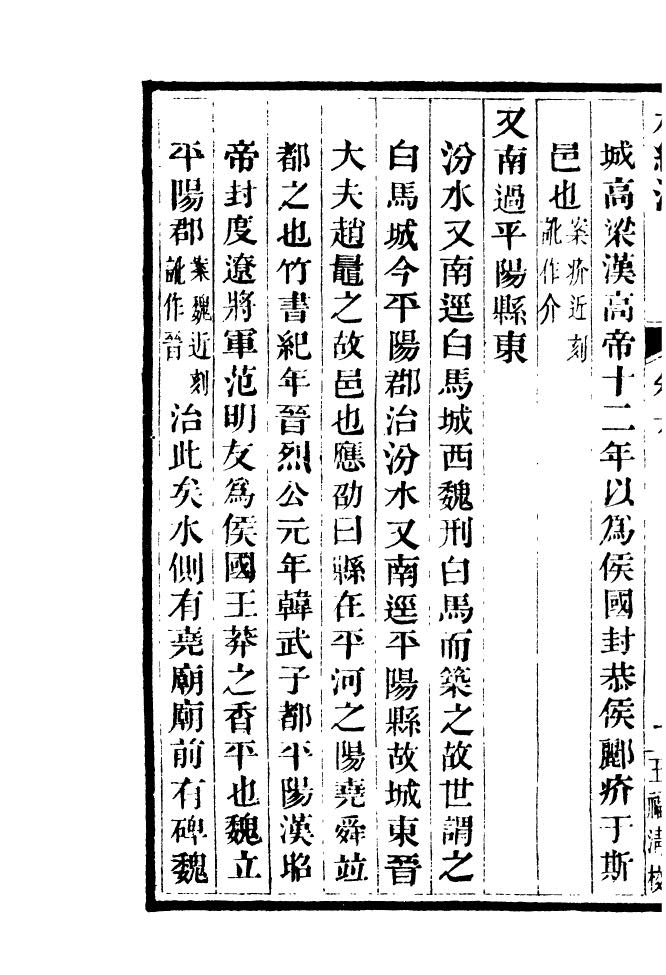 城高梁漢高帝十二年以爲侯國封恭侯酈疥于斯
邑也案疥近刻訛作介
又南過平陽縣東
汾水又南逕白馬城西魏刑白馬而築之故世謂之
白馬城今平陽郡治汾水又南逕平陽縣故城東晉
大夫趙鼂之故邑也應劭曰縣在平河之陽堯舜竝
都之也竹書紀年晉烈公元年韓武子都平陽漢昭
帝封度遼將軍范明友爲侯國王莽之香平也魏立
平陽郡案魏近刻訛作晉治此矣水側有堯廟廟前有碑魏